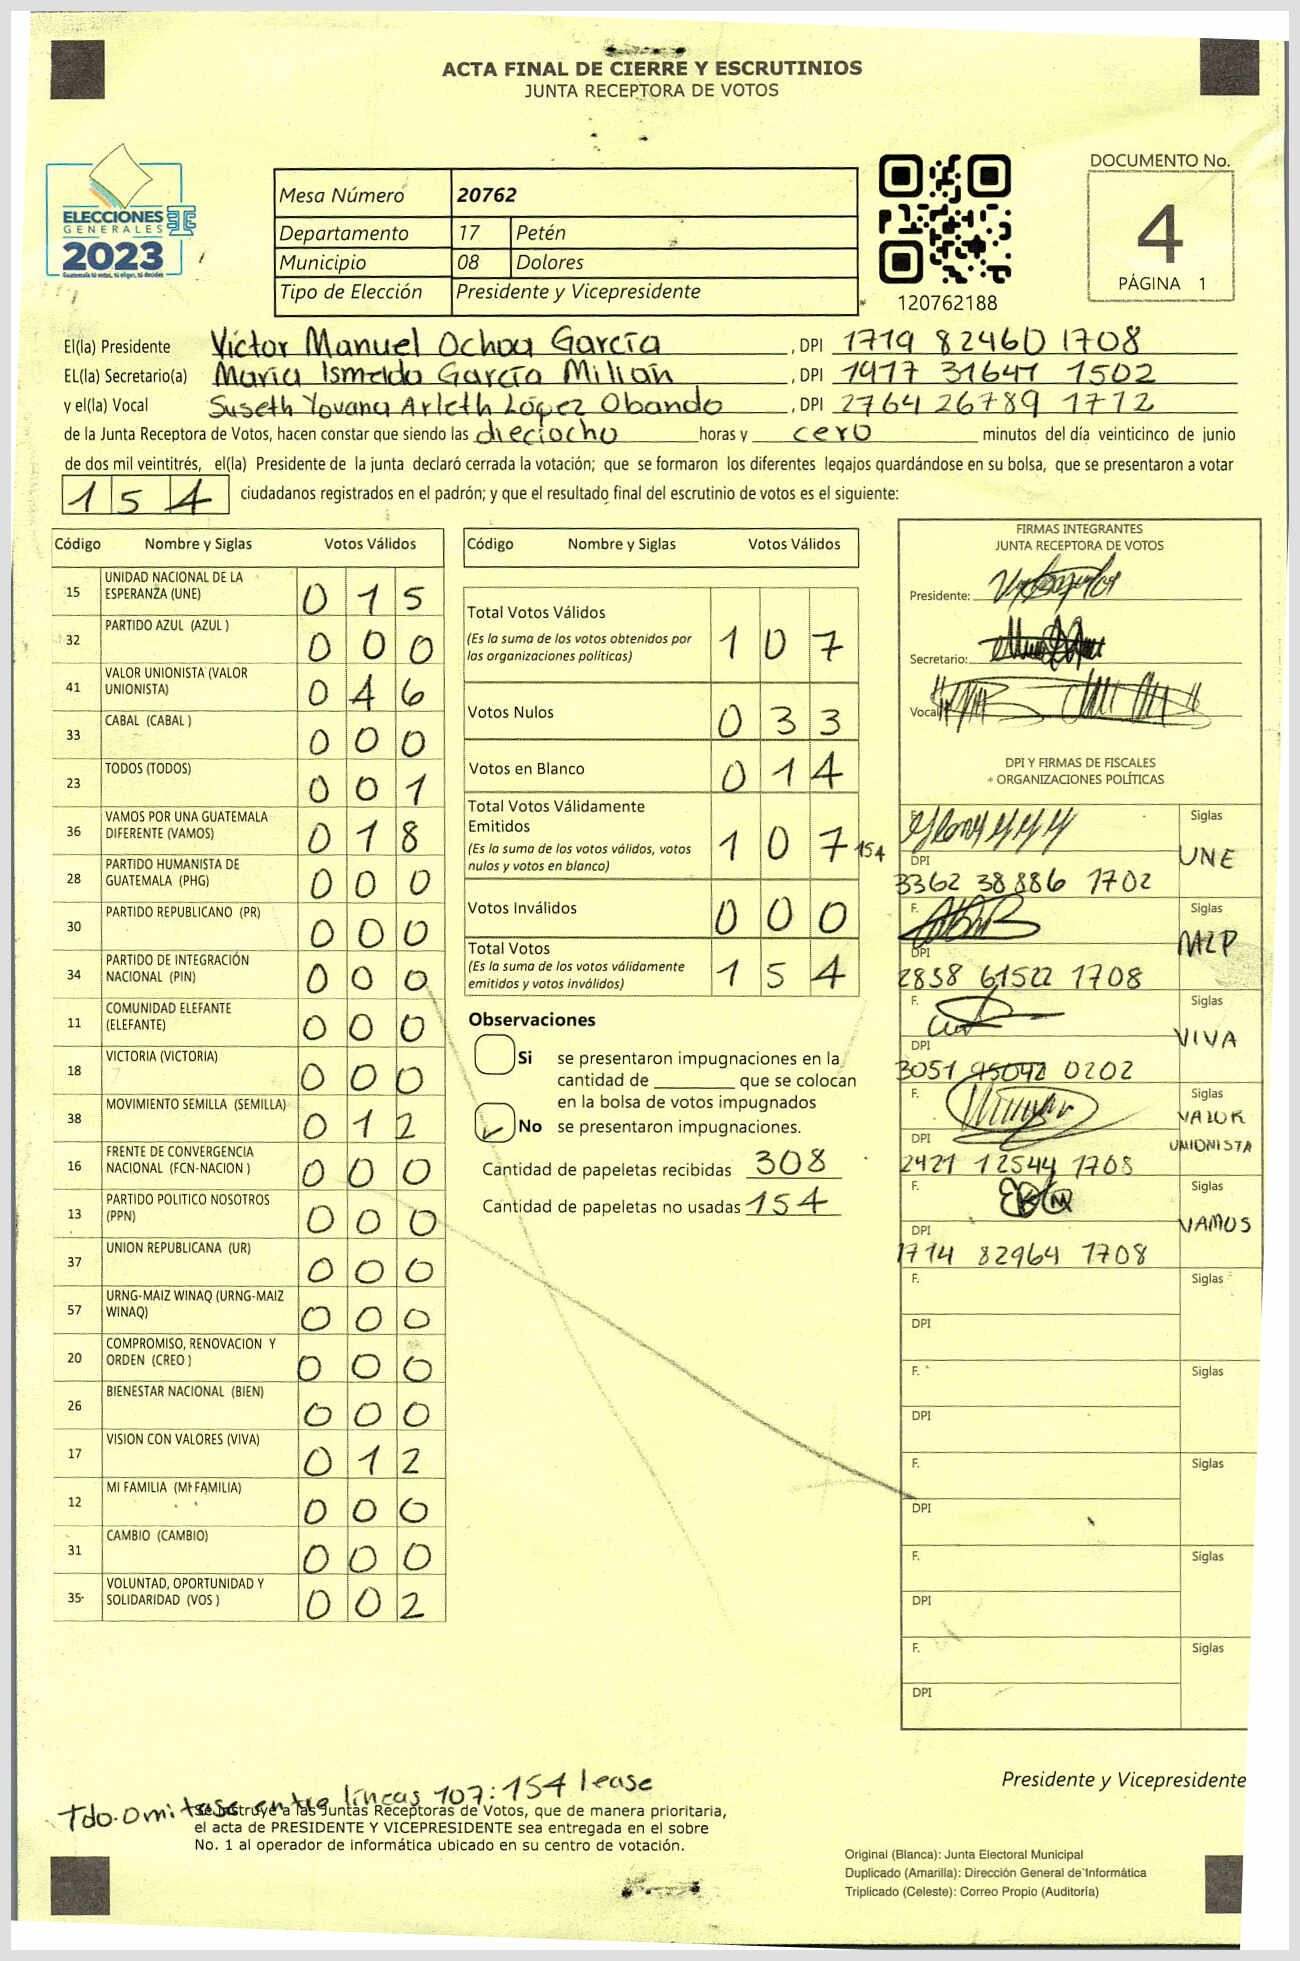 ACTA FINAL DE CIERRE Y ESCRUTINIOS
JUNTA RECEPTORA DE VOTOS
ELECCIONES
GENERALES
2023
Guatemala tú votas, tú eliges, tú decides
Mesa Número 20762
Departamento 17 Petén
Municipio 08 Dolores
Tipo de Elección Presidente y Vicepresidente
120762188
DOCUMENTO No.
4
PÁGINA 1
El(la) Presidente Víctor Manuel Ochoa García , DPI 1719 82460 1708
EL(la) Secretario(a) María Ismelda García Millán , DPI 1917 31641 1502
y el(la) Vocal Suseth Yovana Arleth López Obando , DPI 2764 26789 1712
de la Junta Receptora de Votos, hacen constar que siendo las dieciocho horas y cero minutos del día veinticinco de junio
de dos mil veintitrés, el(la) Presidente de la junta declaró cerrada la votación; que se formaron los diferentes legajos quardándose en su bolsa, que se presentaron a votar
154 ciudadanos registrados en el padrón; y que el resultado final del escrutinio de votos es el siguiente:
Código Nombre y Siglas Votos Válidos
15 UNIDAD NACIONAL DE LA ESPERANZA (UNE) 015
32 PARTIDO AZUL (AZUL ) 000
41 VALOR UNIONISTA (VALOR UNIONISTA) 046
33 CABAL (CABAL ) 000
23 TODOS (TODOS) 001
36 VAMOS POR UNA GUATEMALA DIFERENTE (VAMOS) 018
28 PARTIDO HUMANISTA DE GUATEMALA (PHG) 000
30 PARTIDO REPUBLICANO (PR) 000
34 PARTIDO DE INTEGRACIÓN NACIONAL (PIN) 000
11 COMUNIDAD ELEFANTE (ELEFANTE) 000
18 VICTORIA (VICTORIA) 000
38 MOVIMIENTO SEMILLA (SEMILLA) 012
16 FRENTE DE CONVERGENCIA NACIONAL (FCN-NACION ) 000
13 PARTIDO POLITICO NOSOTROS (PPN) 000
37 UNION REPUBLICANA (UR) 000
57 URNG-MAIZ WINAQ (URNG-MAIZ WINAQ) 000
20 COMPROMISO, RENOVACION Y ORDEN (CREO ) 000
26 BIENESTAR NACIONAL (BIEN) 000
17 VISION CON VALORES (VIVA) 012
12 MI FAMILIA (MI FAMILIA) 000
31 CAMBIO (CAMBIO) 000
35 VOLUNTAD, OPORTUNIDAD Y SOLIDARIDAD (VOS ) 002
Código Nombre y Siglas Votos Válidos
Total Votos Válidos 107
(Es la suma de los votos obtenidos por
las organizaciones políticas)
Votos Nulos 033
Votos en Blanco 014
Total Votos Válidamente
Emitidos 107 154
(Es la suma de los votos válidos, votos
nulos y votos en blanco)
Votos Inválidos 000
Total Votos 154
(Es la suma de los votos válidamente
emitidos y votos inválidos)
Observaciones
Si se presentaron impugnaciones en la
cantidad de ________ que se colocan
en la bolsa de votos impugnados
No se presentaron impugnaciones.
Cantidad de papeletas recibidas 308
Cantidad de papeletas no usadas 154
FIRMAS INTEGRANTES
JUNTA RECEPTORA DE VOTOS
Presidente:
Secretario:
Vocal
DPI Y FIRMAS DE FISCALES
ORGANIZACIONES POLÍTICAS
F. Siglas
UNE
DPI
3362 38886 1702
F. Siglas
MLP
DPI
2858 61522 1708
F. Siglas
VIVA
DPI
3051 95042 0202
F. Siglas
VALOR
UNIONISTA
DPI
2421 12544 1708
F. Siglas
VAMOS
DPI
1714 82964 1708
F. Siglas
DPI
F. Siglas
DPI
F. Siglas
DPI
F. Siglas
DPI
F. Siglas
DPI
Presidente y Vicepresidente
Tdo. Omitase entre líneas 107:154 lease
Se instruye a las Juntas Receptoras de Votos, que de manera prioritaria,
el acta de PRESIDENTE Y VICEPRESIDENTE sea entregada en el sobre
No. 1 al operador de informática ubicado en su centro de votación.
Original (Blanca): Junta Electoral Municipal
Duplicado (Amarilla): Dirección General de Informática
Triplicado (Celeste): Correo Propio (Auditoría)